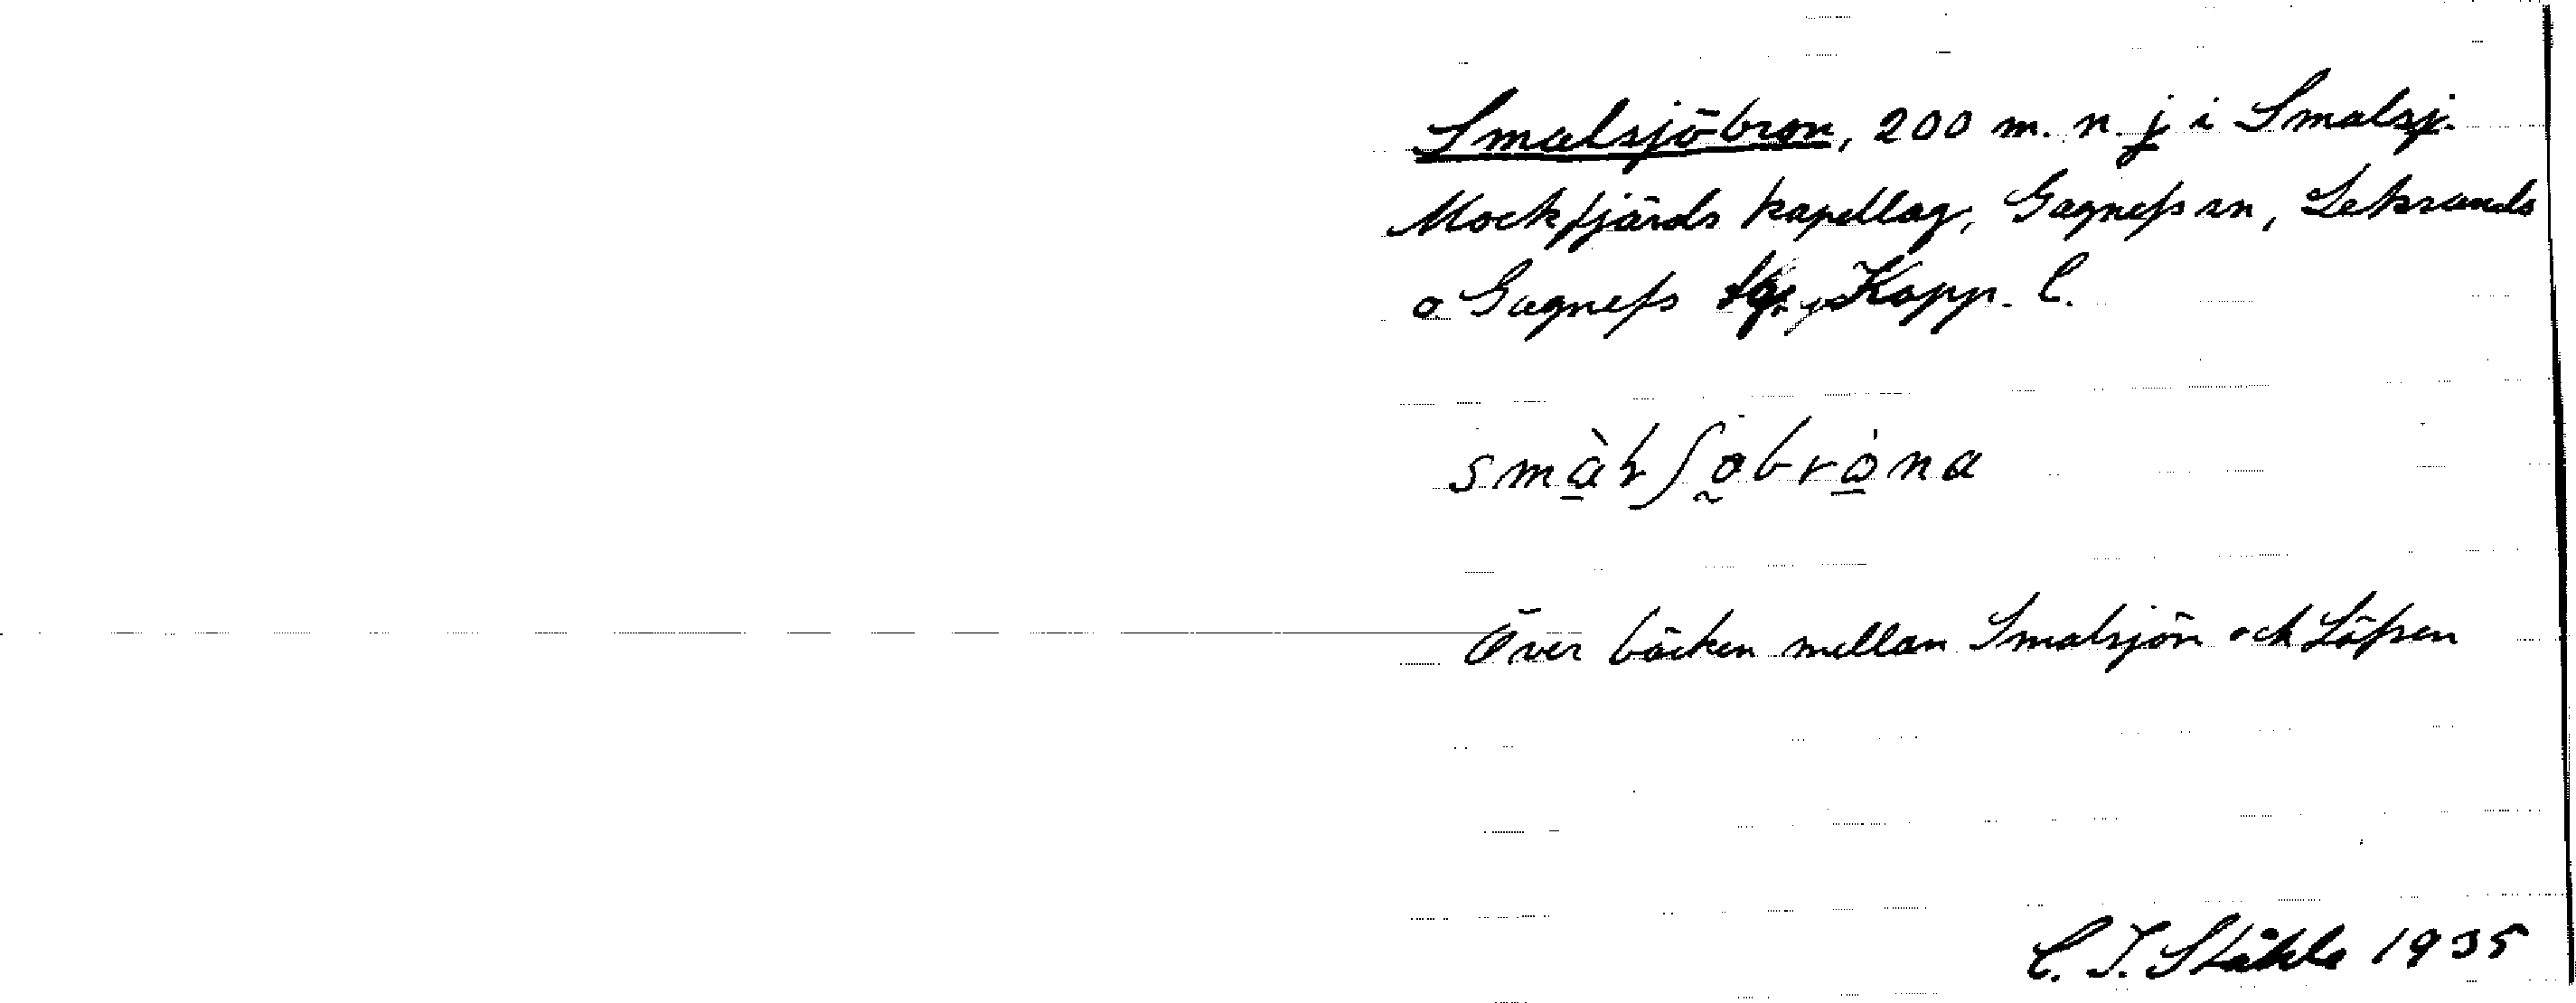 Smalsjöbron, 200 m. n. j i Smalsj.
Mockfjärds kapellag, Gagnefs sn, Leksands
o Gagnefs tgr, Kopp. l.
smàlʃobròna
Över bäcken mellan Smalsjön och Löfsen
C. I. Ståhle 1935